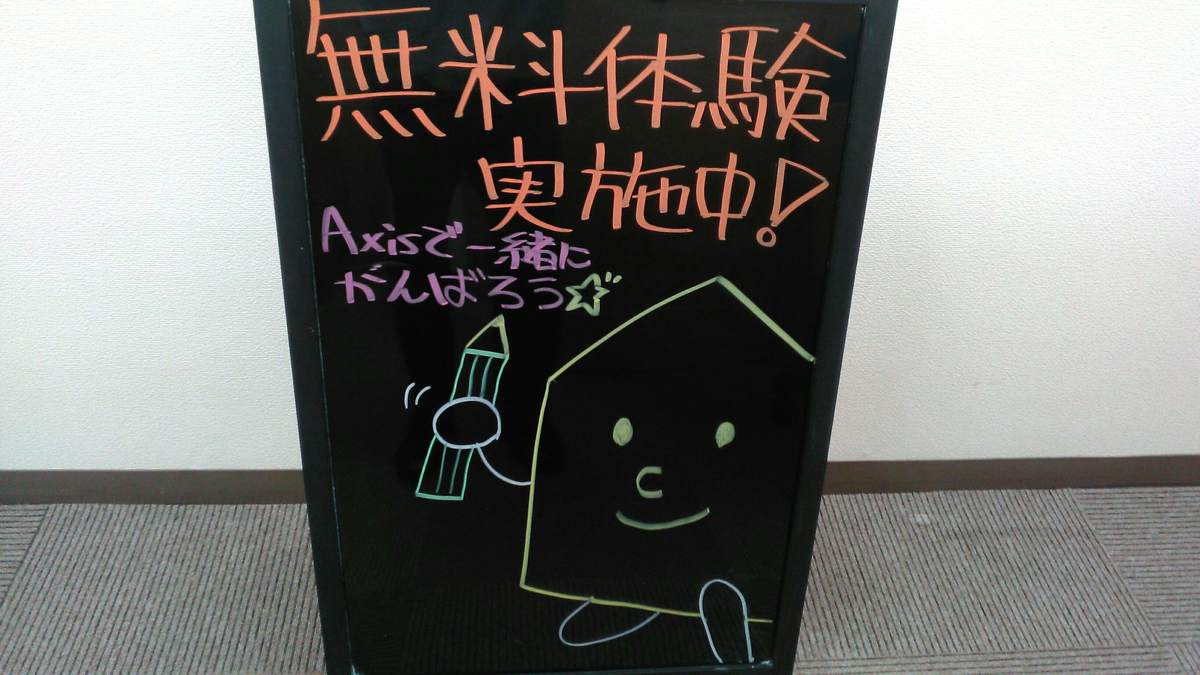 無料体験
実施中!
Axisで一緒に
がんばろう☆